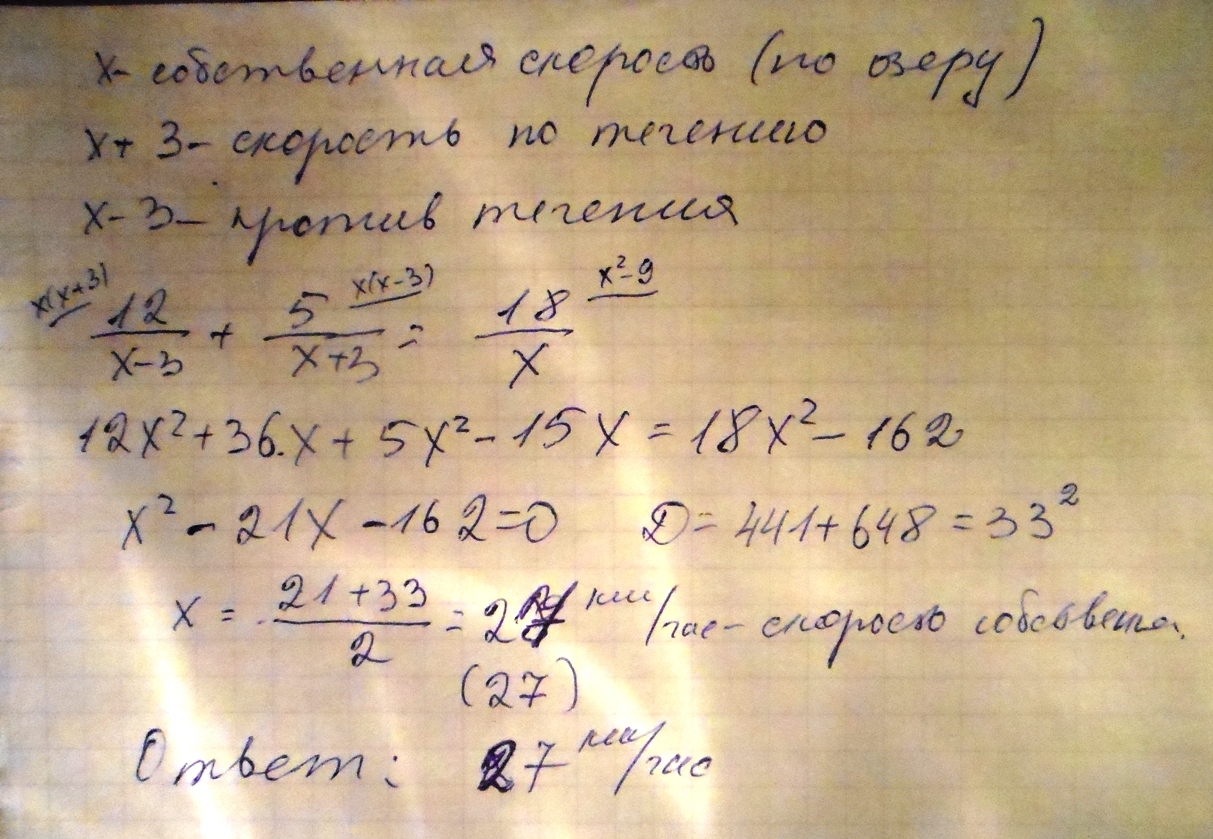 x - собственная скорость (по озеру)
x + 3 - скорость по течению
x - 3 - против течения
x(x+3) 12/(x-3) + 5/(x+3) x(x-3) = 18/x x²-9
12x² + 36.x + 5x² - 15x = 18x² - 162
x² - 21x - 162 = 0 D = 441 + 648 = 33²
x = (21+33)/2 = 27 км/час - скорость собственна.
(27)
Ответ: 27 км/час